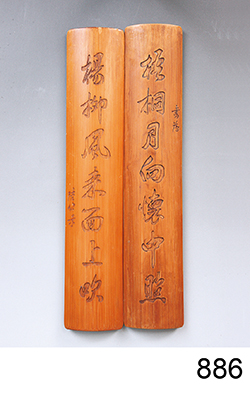 梧桐月向懷中照
楊柳風來面上吹
886